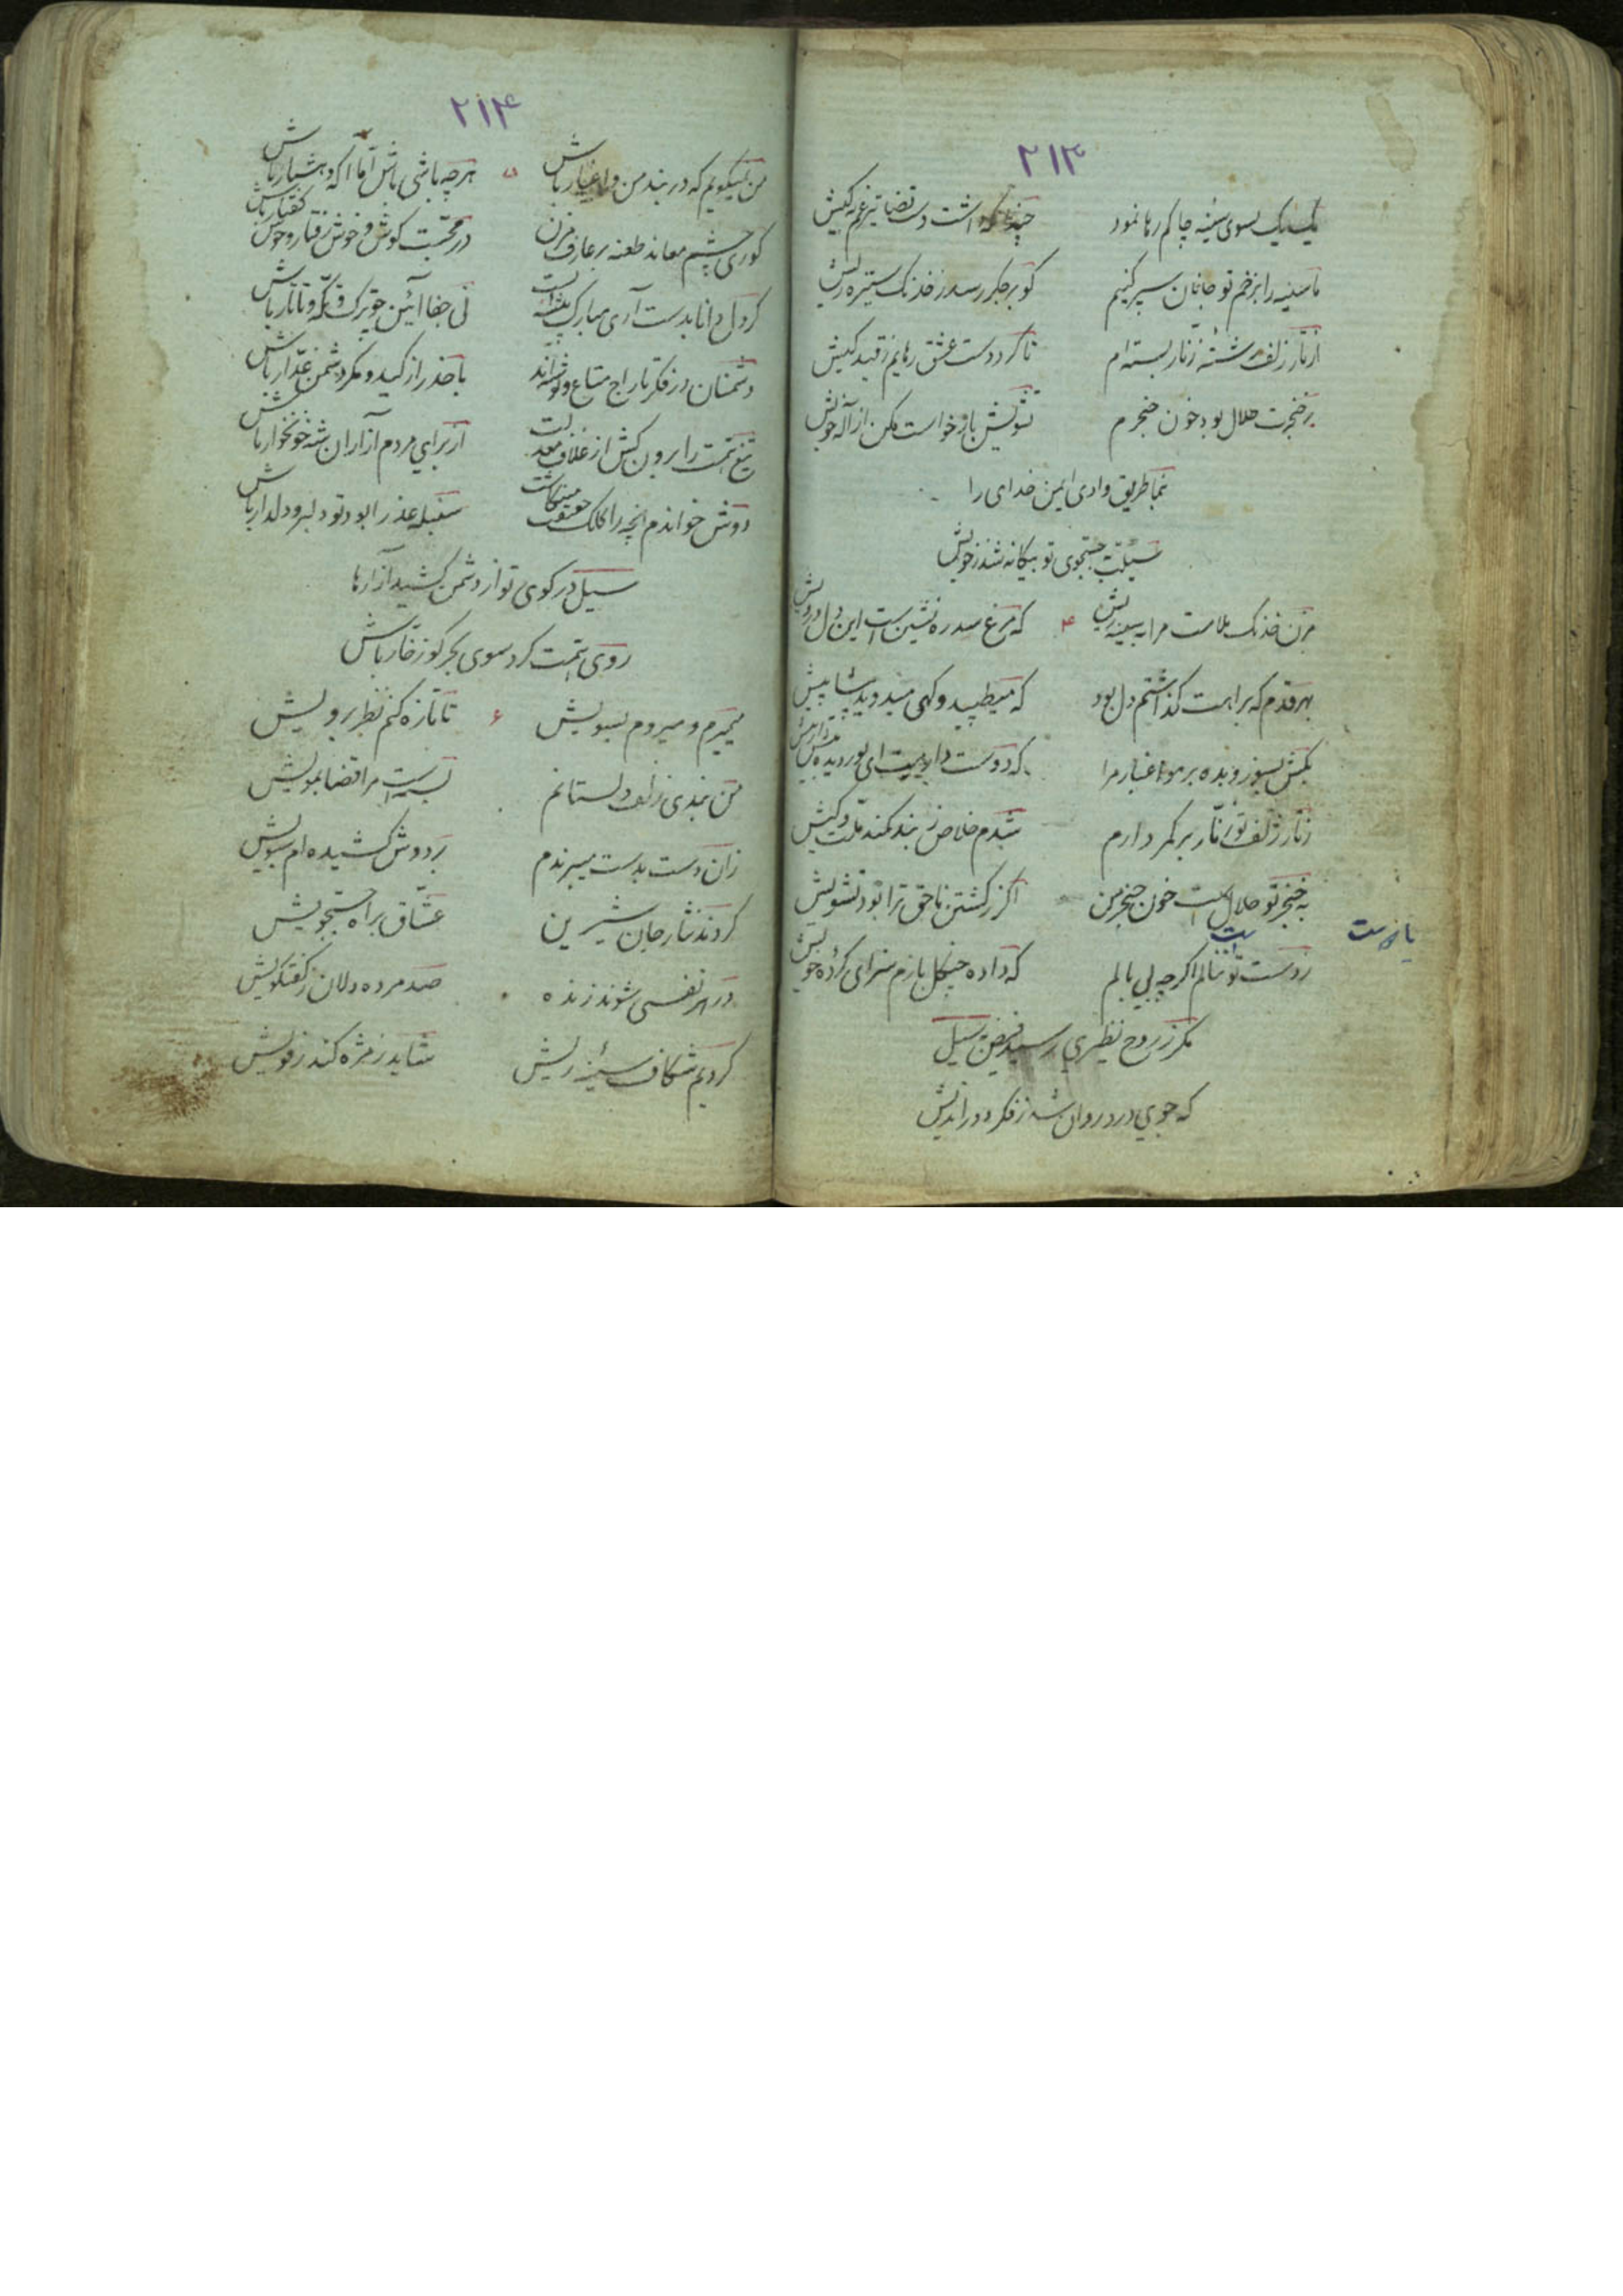 ۲۱۳
یک یک بسوی سینه چاکم رها نمود چندانکه داشت دست قضا تیر غم بکیش
ما سینه را بزخم تو جانان سپر کنیم کو بر جگر رسد ز خدنک ستیزه ریش
از تار زلف رشته زنار بسته ام تا کرد دست عشق رهایم ز قید کیش
بر خنجرت حلال بود خون حنجرم تشویش باز خواست مکن از آله خویش
بنما طریق وادی ایمن خدای را
سیلت بجستجوی تو بیکانه شد ز خویش
مزن خدنک ملامت مرا به سینه ریش ۴ که مرغ سدره نشین است این دل درویش
بهر قدم که براهت کذاشتم دل بود که میطپید و کهی میدوید پیشاپیش
بکش بسوز و بده بر هوا غبار مرا که دوست دارمت ای نور دیده
ز تار زلف تو زنار بر کمر دارم شدم خلاص ز بند کمند ملت و کیش
به خنجر تو حلال است خون حنجر من اگر ز کشتن ناحق ترا بود تشویش
ز دست تو ننالم اکر چه بی بالم که داده چنکل بازم سزای کرده خویش
مکر ز روح نظیری رسید فیض سیل
که جوی درد روان شد ز فکر دور اندیش
۲۱۴
من نمیکویم که در بند من و اغیار باش ۵ هر چه باشی باش اما آکه و هشیار باش
کوری چشم معاند طعنه بر عارف مزن در محبت کوش و خوش رفتار و خوش کفتار باش
کر دل دانا بدست آری مبارک پیشه است نی جفا آئین چو ترک و تاتار باش
دشمنان در فکر تاراج متاع و اند با حذر از کید و مکر دشمن غدار باش
تیغ همت را برون کش از غلاف معدلت از برای مردم آزاران شه خونخوار باش
دوش خواندم آنچه را کلک میکاشت عذرا بود تو دلبر و دلدار باش
سیل در کوی تو از دشمن کشید آزارها
روی همت کرد سوی بحر کو زخار باش
میمیرم و میروم بسویش ۶ تا تازه کنم نظر برویش
من بندی زلف دلستانم بسته است مرا قضا بمویش
زان دست بدست میبرندم بر دوش کشیده ام سبویش
کردند نثار جان شیرین عشاق براه جستجویش
در هر نفسی شوند زنده صد مرده دلان ز کفتکویش
کردیم شکاف سینه ریش شاید ز مژه کند رفویش